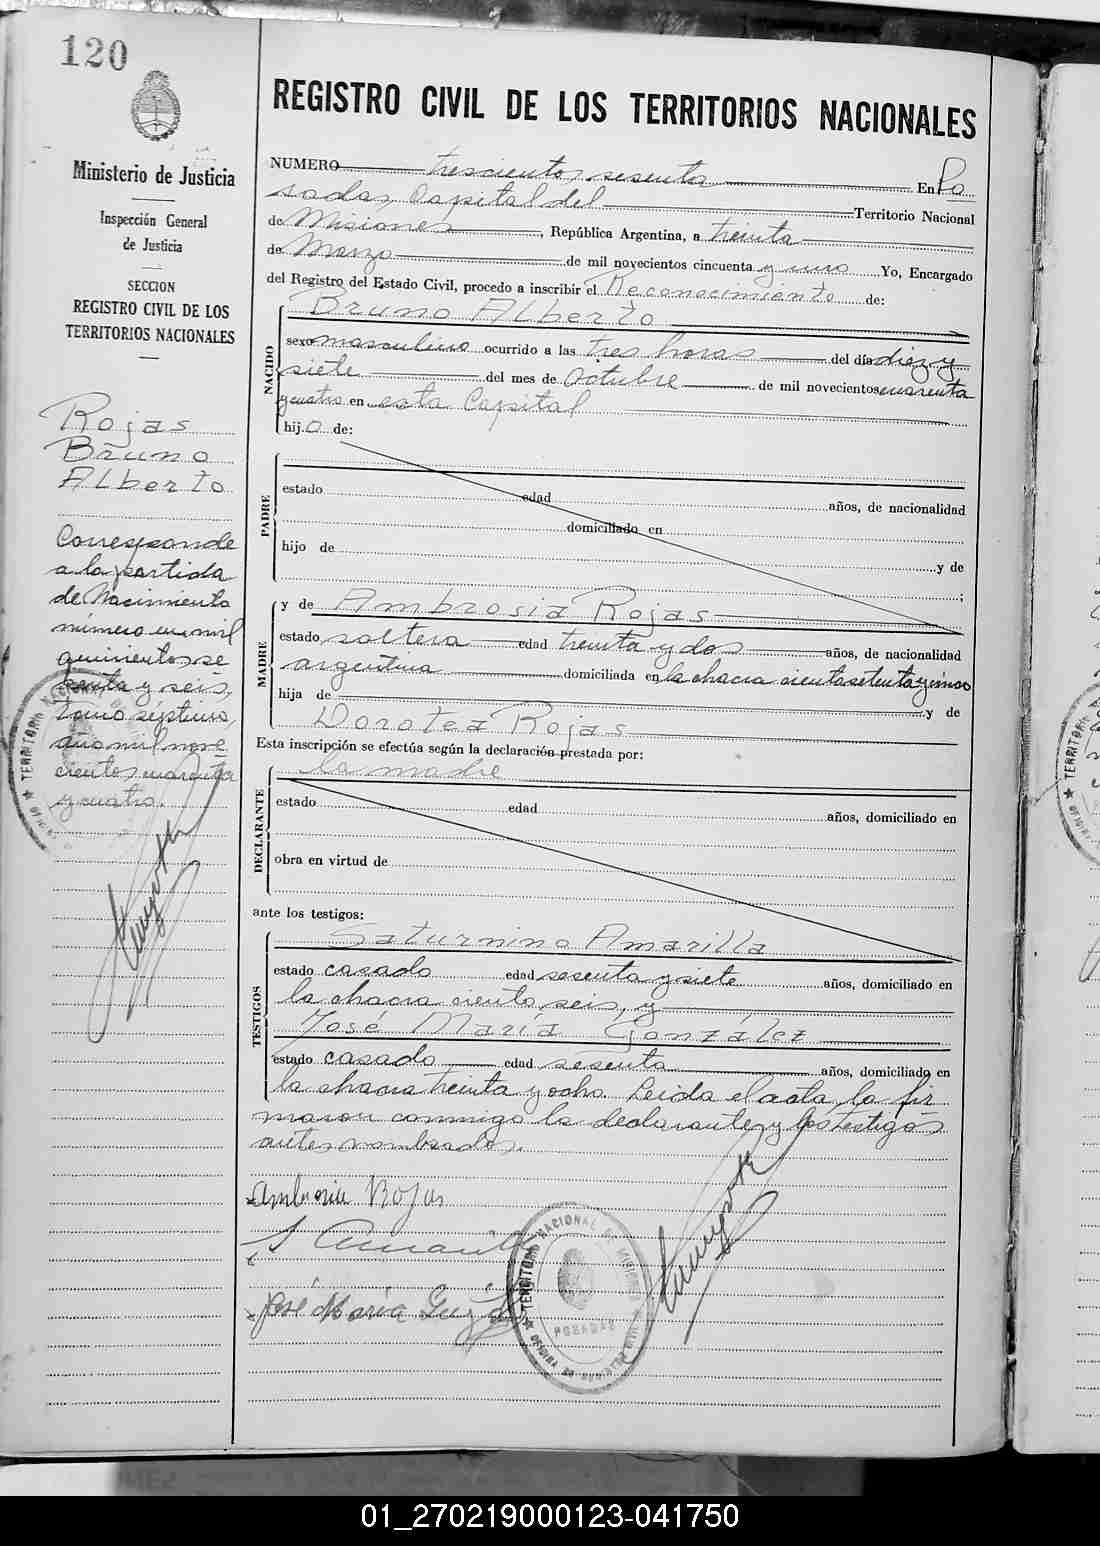 120
Ministerio de Justicia
Inspección General
de Justicia
SECCION
REGISTRO CIVIL DE LOS
TERRITORIOS NACIONALES
Rojas
Bruno
Alberto
Corresponde
a la partida
de Nacimiento
número un mil
quinientos se
senta y seis,
tomo séptimo,
año mil nove
cientos cuarenta
y cuatro.
REGISTRO CIVIL DE LOS TERRITORIOS NACIONALES
NUMERO trescientos sesenta En Po
sadas, Capital del Territorio Nacional
de Misiones, República Argentina, a treinta
de Marzo de mil novecientos cincuenta y uno Yo, Encargado
del Registro del Estado Civil, procedo a inscribir el Reconocimiento de:
NACIDO
Bruno Alberto
sexo masculino ocurrido a las tres horas del día diez y
siete del mes de Octubre de mil novecientos cuarenta
y cuatro en esta Capital
hijo de:
PADRE
estado edad años, de nacionalidad
domiciliado en
hijo de y de
MADRE
y de Ambrosia Rojas
estado soltera edad treinta y dos años, de nacionalidad
argentina domiciliada en la chacra ciento setenta y cinco
hija de y de
Dorotea Rojas
Esta inscripción se efectúa según la declaración prestada por:
DECLARANTE
la madre
estado edad años, domiciliado en
obra en virtud de
ante los testigos:
TESTIGOS
Saturnino Amarilla
estado casado edad sesenta y siete años, domiciliado en
la chacra ciento seis, y
José María González
estado casado edad sesenta años, domiciliado en
la chacra treinta y ocho. Leida el acta, la fir
maron conmigo la declarante y los testigos
antes nombrados.
Ambrosia Rojas
S Amarilla
José María González
TERRITORIO NACIONAL DE MISIONES
POSADAS
01_270219000123-041750